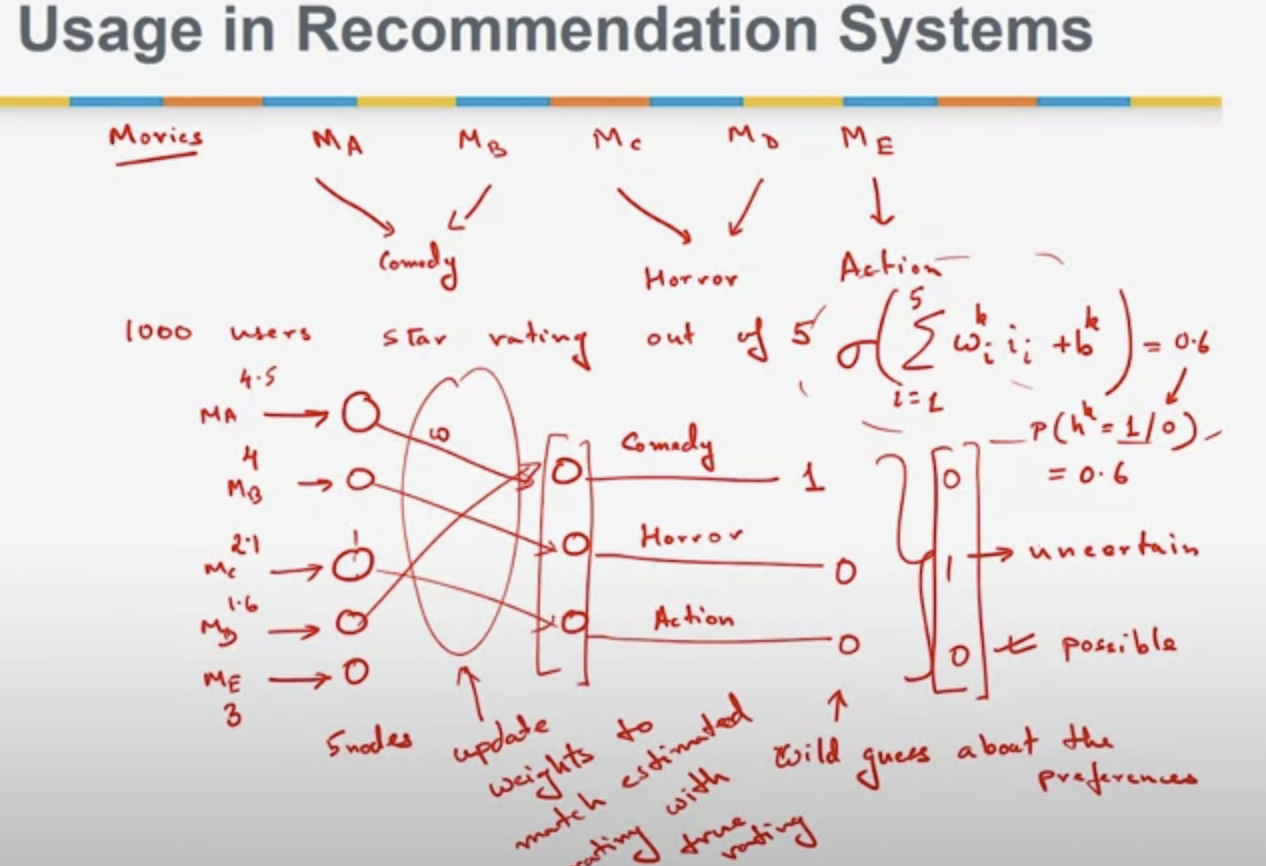 Usage in Recommendation Systems
Movies MA MB MC MD ME
Comedy Horror Action
1000 users star rating out of 5
σ(5 Σ i=1 wᵢᵏ iᵢ + bᵏ) = 0.6
P(hᵏ = 1/0)
= 0.6
4.5
MA
4
MB
2.1
Mc
1.6
MD
ME
3
5 nodes
ω
Comedy 1
Horror 0
Action 0
0
1 → uncertain
0 possible
update
weights to
match estimated
rating with
true
rating
wild guess about the
preferences